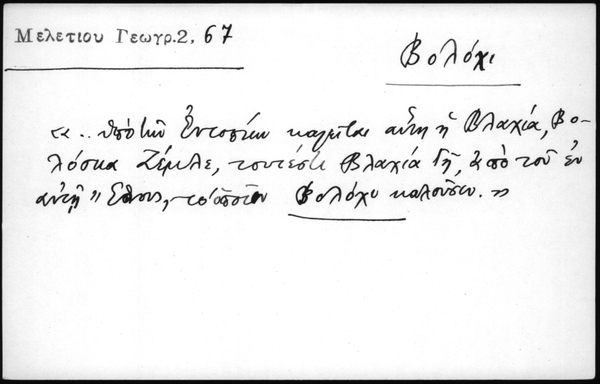 Μελετίου Γεωγρ. 2, 67
Βολόχι
«.. ὑπὸ τῶν Ἐντοπίων καλεῖται αὕτη ἡ Βλαχία, Βο-
λόσκα Ζέμλε, τουτέστι Βλαχία Γῆ, ἀπὸ τοῦ ἐν
αὐτῇ Ἔθνους, τὸ ὁποῖον Βολόχι καλοῦσιν.»